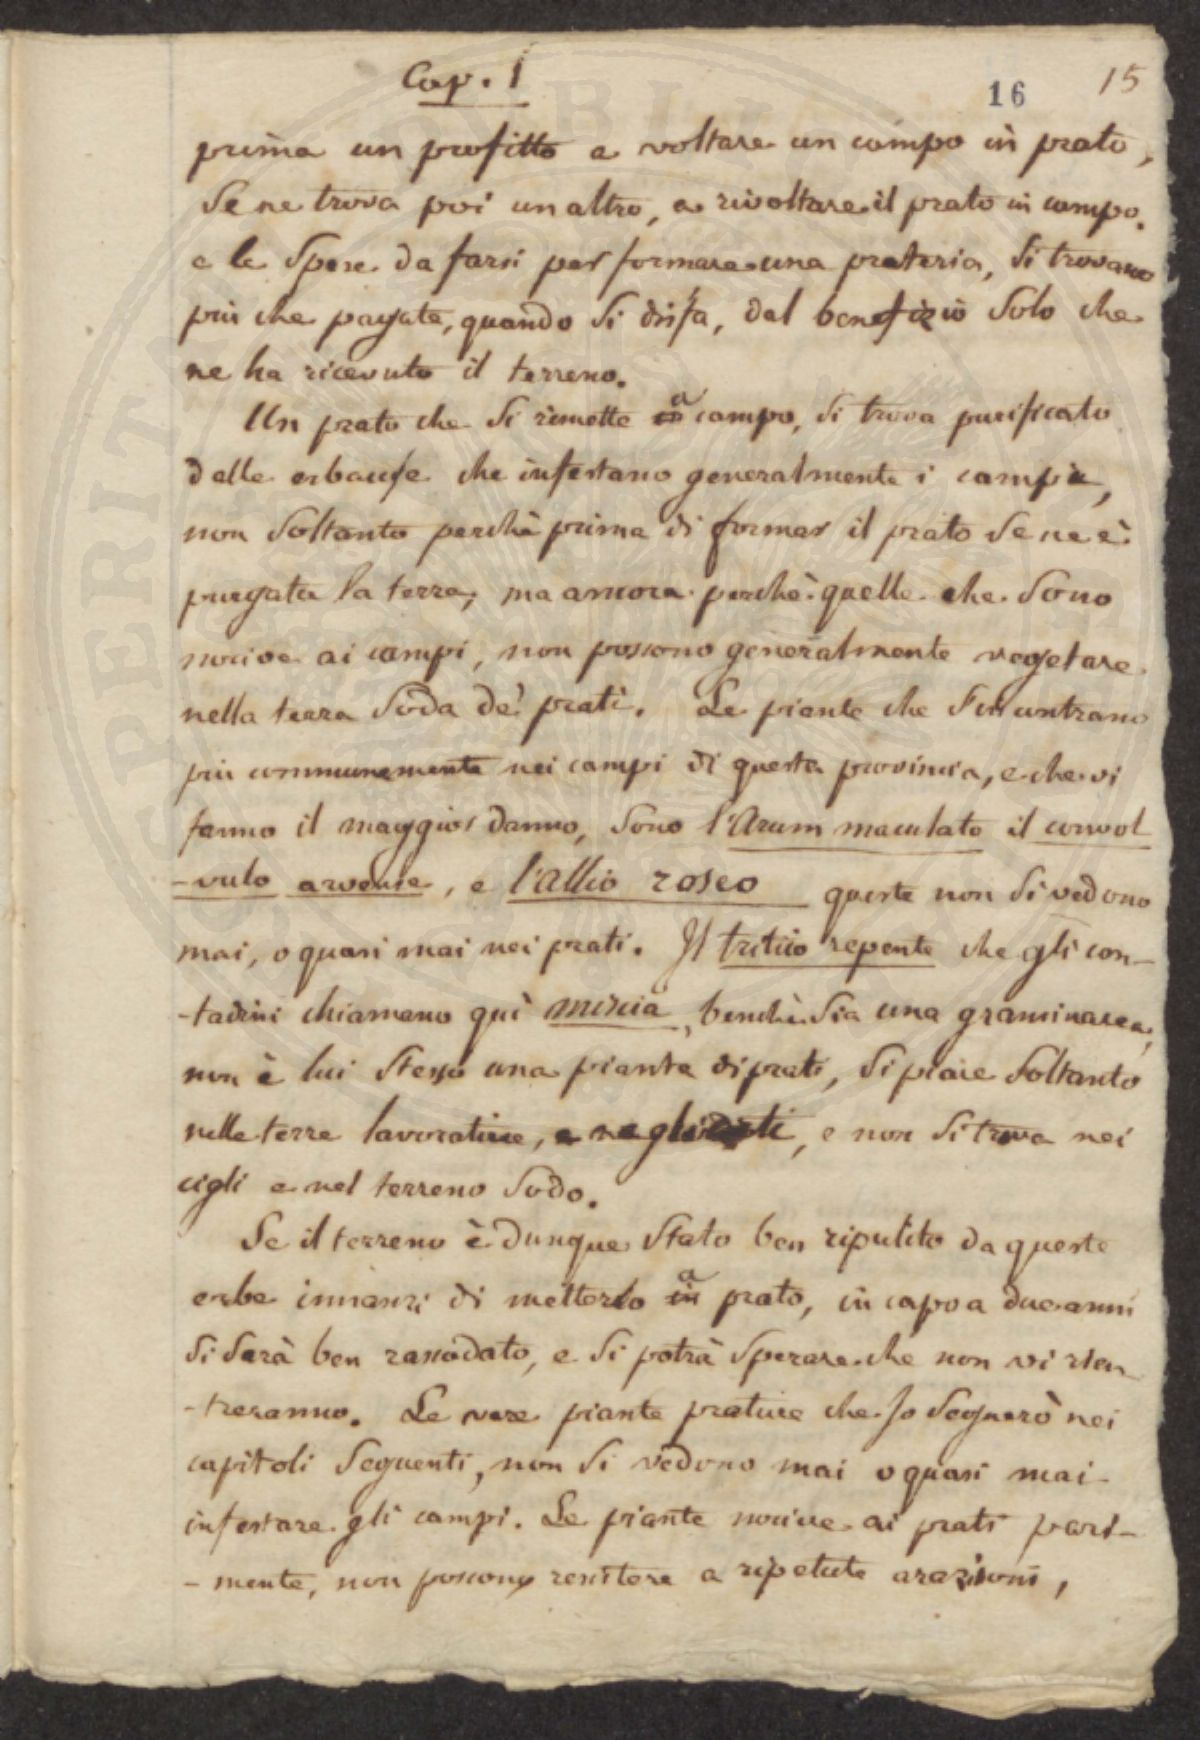 Cap. I
16 15
prima un profitto a voltare un campo in prato,
se ne trova poi un altro, a rivoltare il prato in campo.
e le spese da farsi per formare una prateria, si trovano
piu che pagate, quando si disfa, dal benefizio solo che
ne ha ricevuto il terreno.
Un prato che si rimette a campo, si trova purificato
delle erbacce che infestano generalmente i campi,
non soltanto perchè prima di formar il prato se ne è
purgata la terra, ma ancora perchè quelle che sono
nocive ai campi, non possono generalmente vegetare
nella terra soda de' prati. Le piante che s'incontrano
piu communemente nei campi di questa provincia, e che vi
fanno il maggior danno, sono l'Arum maculato il convol
-vulo arvense, e l'allio roseo queste non si vedono
mai, o quasi mai nei prati. Il tritico repente che gli con-
-tadini chiamano quì miscia, benchè sia una graminacea,
non è lui stesso una pianta di prati, si piace soltanto
nelle terre lavorative, e non si trova nei
cigli e nel terreno sodo.
Se il terreno è dunque stato ben ripulito da queste
erbe innanzi di metterlo a prato, in capo a due anni
si sarà ben rassodato, e si potrà sperare che non vi rien-
-treranno. Le vere piante prative che Io segnerò nei
capitoli seguenti, non si vedono mai o quasi mai
infestare gli campi. Le piante nocive ai prati pari-
-mente, non possono resistere a ripetute arazioni,